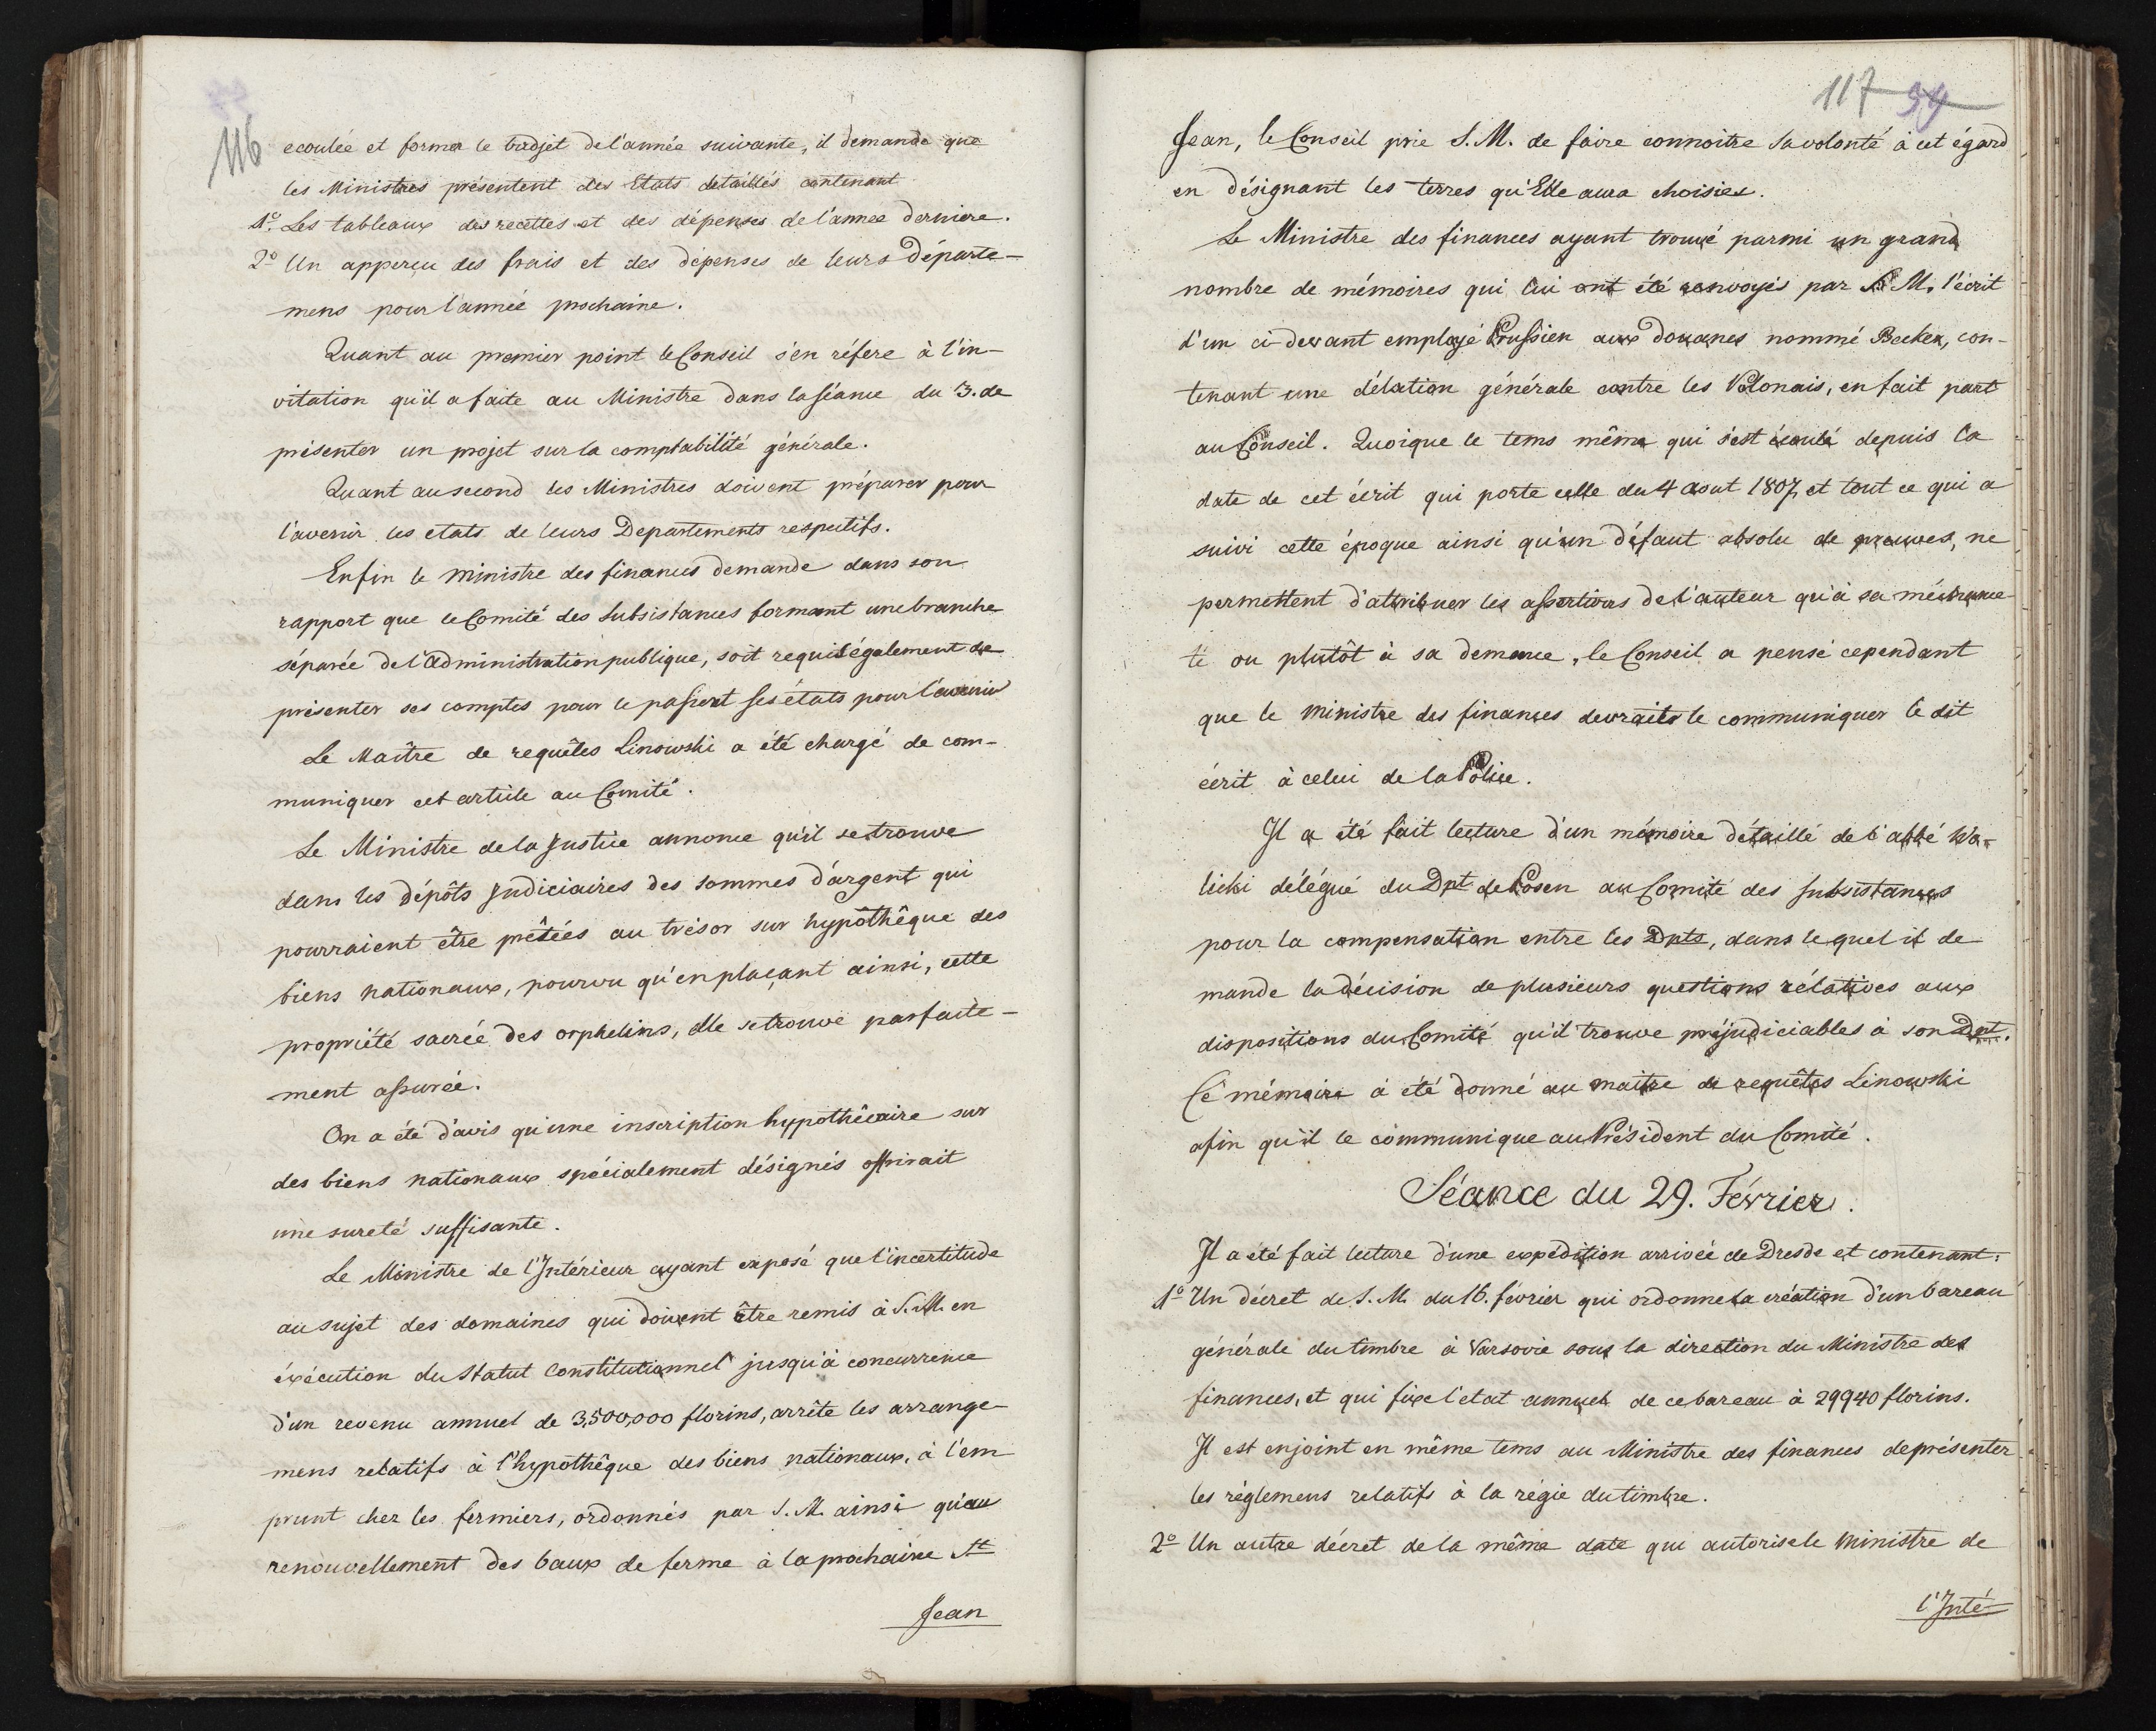 116
ecoulée et former le budjet de l'année suivante, il demande que
les Ministres présentent des Etats detaillés contenant
1º. Les tableaux des recettes et des dépenses de l'année derniere.
2º Un apperçu des frais et des dépenses de leurs Départe-
mens pour l'année prochaine.
Quant au premier point le Conseil s'en réfere à l'in-
vitation qu'il a faite au Ministre dans la séance du 3. de
présenter un projet sur la comptabilité générale.
Quant au second les Ministres doivent préparer pour
l'avenir les etats de leurs Departements respectifs.
Enfin le ministre des finances demande dans son
rapport que le Comité des Subsistances formant une branche
séparée de l'administration publique, soit requis également de
présenter ses comptes pour le passé et ses états pour l'avenir
Le Maître de requêtes Linowski a été chargé de com-
muniquer cet article au Comité.
Le Ministre de la Justice annonce qu'il se trouve
dans les dépôts Judiciaires des sommes d'argent qui
pourraient être prêtées au trésor sur hypôthêque des
biens nationaux, pourvu qu'en plaçant ainsi, cette
propriété sacrée des orphelins, elle se trouve parfaite-
ment assurée.
On a été d'avis qu'une inscription hypothécaire sur
des biens nationaux spécialement désignés offrirait
une sureté suffisante.
Le Ministre de l'Intérieur ayant exposé que l'incertitude
au sujet des domaines qui doivent être remis à S. M. en
éxécution du Statut Constitutionnel jusqu'à concurrence
d'un revenu annuel de 3,500,000 florins, arrête les arrange-
mens relatifs à l'hypothêque des biens nationaux, à l'em
prunt chez les fermiers, ordonnés par S. M. ainsi qu'au
renouvellement des baux de ferme à la prochaine St
Jean
117 59
Jean, le Conseil prie S. M. de faire connoitre sa volonté à cet égard
en désignant les terres qu'Elle aura choisies.
Le Ministre des finances ayant trouvé parmi un grand
nombre de mémoires qui lui ont été renvoyés par S. M. l'écrit
d'un ci-devant employé Prussien aux douanes nommé Becker, con-
tenant une délation générale contre les Polonais, en fait part
au Conseil. Quoique le tems même qui s'est écoulé depuis la
date de cet écrit qui porte celle du 4 aout 1807, et tout ce qui a
suivi cette époque ainsi qu'un défaut absolu de preuves, ne
permettent d'attribuer les assertions de l'auteur qu'à sa méchance-
té ou plutôt à sa demence, le Conseil a pensé cependant
que le ministre des finances devrait le communiquer le dit
écrit à celui de la Police.
Il a été fait lecture d'un mémoire détaillé de l'abbé Wa-
licki délégué du Dpt de Posen au Comité des subsistances
pour la compensation entre les Dpts, dans lequel il de
mande la décision de plusieurs questions rélatives aux
dispositions du Comité qu'il trouve préjudiciables à son Dpt.
Ce mémoire à été donné au maitre de requêtes Linowski
afin qu'il le communique au Président du Comité.
Séance du 29. Février.
Il a été fait lecture d'une expedition arrivée de Dresde et contenant:
1º Un décret de S. M. du 16. février qui ordonne la création d'un bareau
générale du timbre à Varsovie sous la direction du Ministre des
finances, et qui fixe l'etat annuel de ce bareau à 29940 florins.
Il est enjoint en même tems au Ministre des finances de présenter
les réglemens relatifs à la régie du timbre.
2º Un autre décret de la même date qui autorise le ministre de
l'Inté-